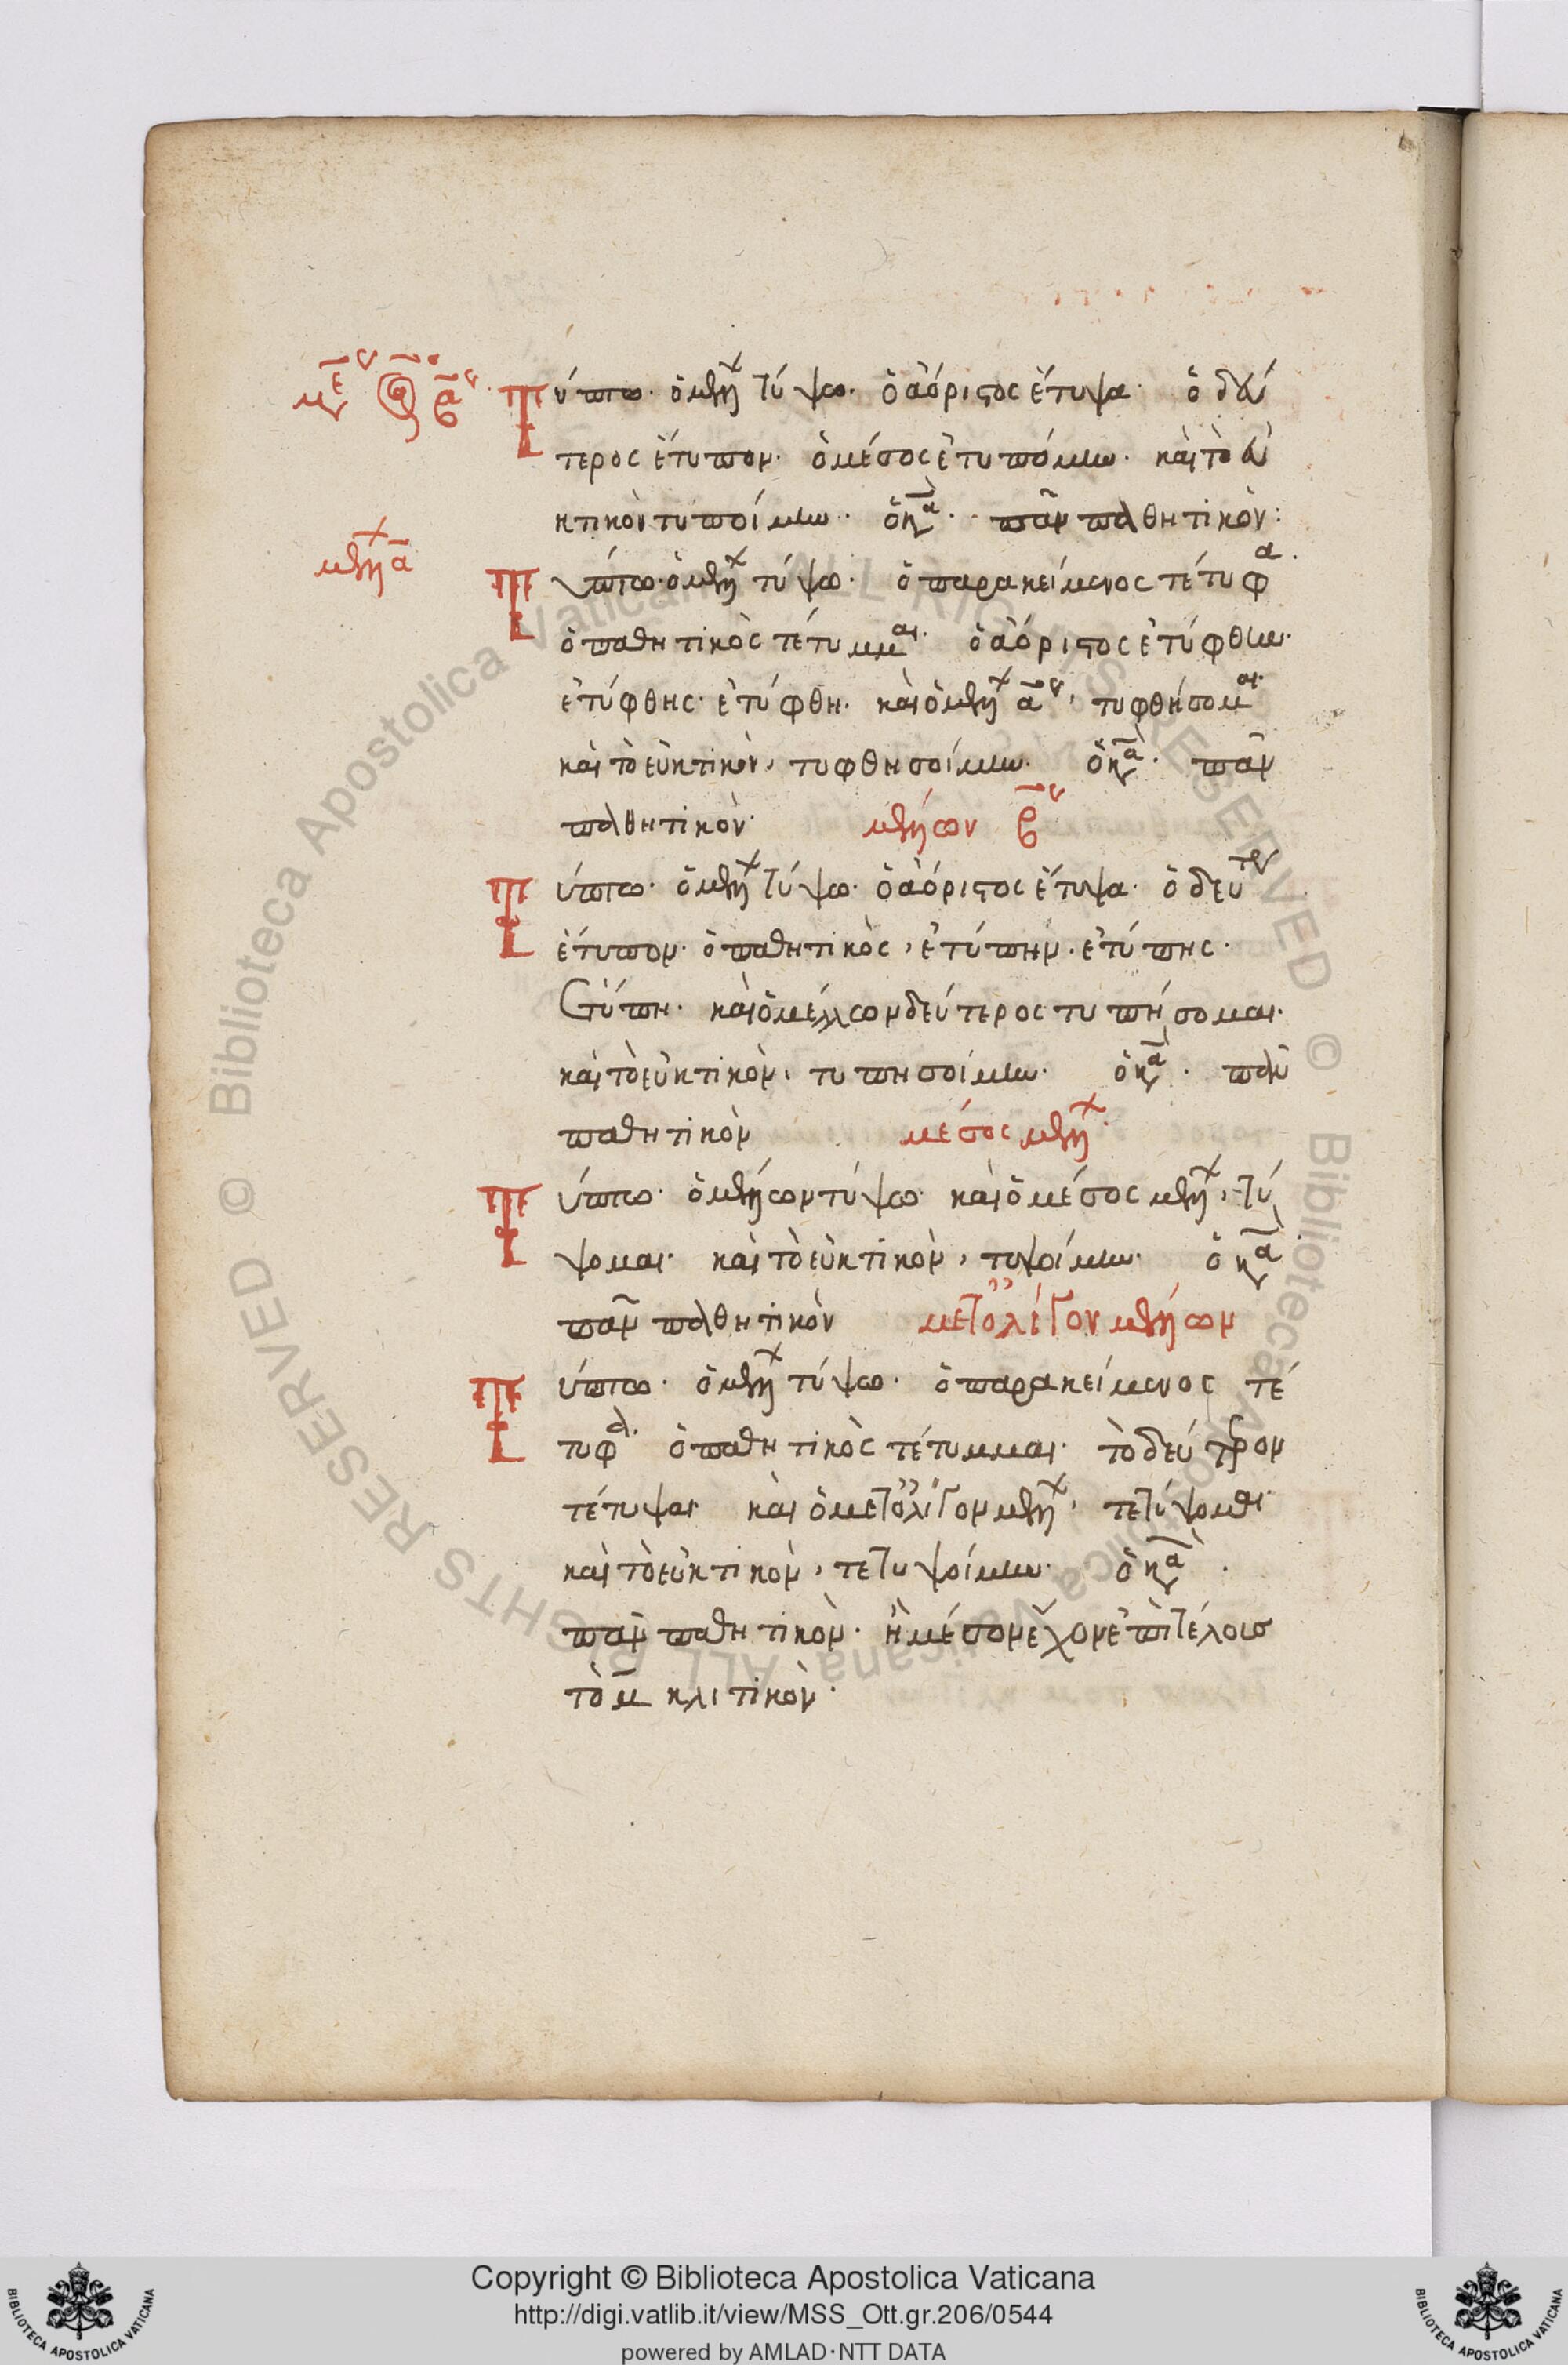 Τύπτω· ὁ μέλλων τύψω· ὁ ἀόριστος ἔτυψα· ὁ δεύ
τερος ἔτυπον· ὁ μέσος ἐτυπόμην· καὶ τὸ εὐ
κτικὸν τυποίμην· ὁ κανὼν· πᾶν παθητικὸν:
μέλλων α
Τύπτω· ὁ μέλλων τύψω· ὁ παρακείμενος τέτυφα·
ὁ παθητικὸς τέτυμμαι· ὁ ἀόριστος ἐτύφθην·
ἐτύφθης· ἐτύφθη· καὶ ὁ μέλλων αος, τυφθήσομαι·
καὶ τὸ εὐκτικὸν, τυφθησοίμην· ὁ κανὼν· πᾶν
παθητικὸν· μέλλων βος
Τύπτω· ὁ μέλλων τύψω· ὁ ἀόριστος ἔτυψα· ὁ δεύτερος
ἔτυπον· ὁ παθητικὸς, ἐτύπην· ἐτύπης·
ἐτύπη· καὶ ὁ μέλλων δεύτερος τυπήσομαι·
καὶ τὸ εὐκτικὸν, τυπησοίμην· ὁ κανὼν· πᾶν
παθητικὸν μέσος μέλλων·
Τύπτω· ὁ μέλλων τύψω· καὶ ὁ μέσος μέλλων, τύ
ψομαι· καὶ τὸ εὐκτικὸν, τυψοίμην· ὁ κανὼν
πᾶν παθητικὸν μετ' ὀλίγον μέλλων
Τύπτω· ὁ μέλλων τύψω· ὁ παρακείμενος τέ
τυφα· ὁ παθητικὸς τέτυμμαι· τὸ δεύτερον
τέτυψαι καὶ ὁ μετ' ὀλίγον μέλλων, τετύψομαι·
καὶ τὸ εὐκτικὸν, τετυψοίμην· ὁ κανὼν·
πᾶν παθητικὸν· ἢ μέσον ἔχον ἐπὶ τέλους
τὸ μ κλιτικὸν·
Copyright © Biblioteca Apostolica Vaticana
http://digi.vatlib.it/view/MSS_Ott.gr.206/0544
powered by AMLAD·NTT DATA
BIBLIOTECA APOSTOLICA VATICANA
BIBLIOTECA APOSTOLICA VATICANA
© Biblioteca Apostolica Vaticana ALL RIGHTS RESERVED © Biblioteca Apostolica Vaticana ALL RIGHTS RESERVED